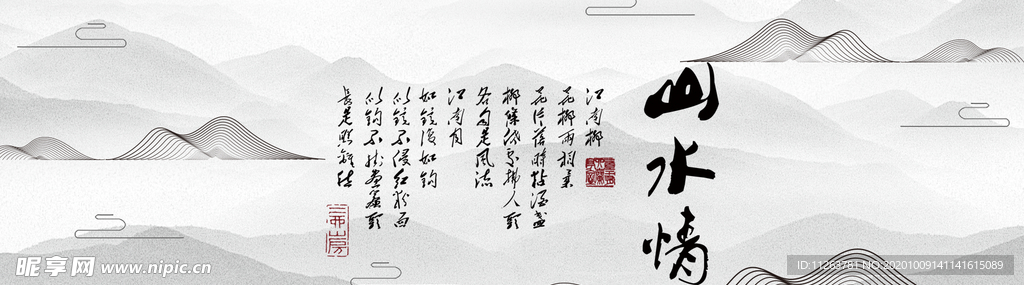 山水情
江南柳
花柳两相柔
花片落时黏酒盏
柳条低处拂人头
各自是风流
江南月
如镜复如钩
似镜不侵红粉面
似钩不挂画帘头
长是照离愁
昵享网 www.nipic.cn
ID:11263781 NO:20201009141141615089